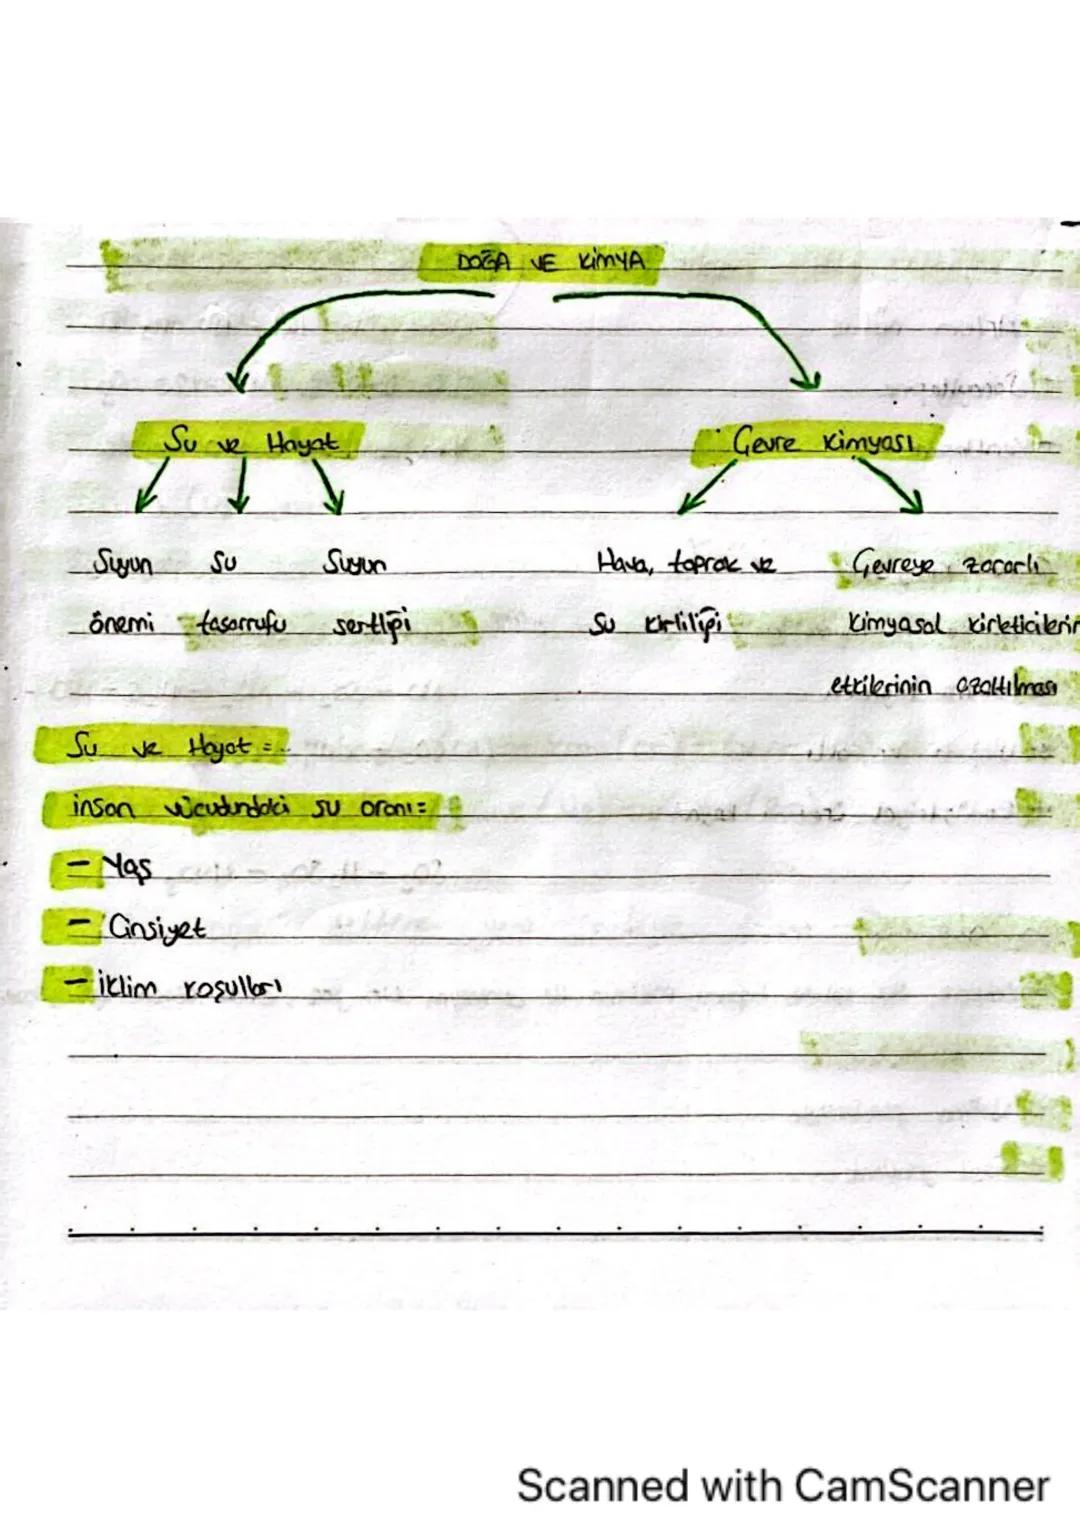 DOĞA VE KİMYA
Su ve Hayat Çevre Kimyası
Suyun Su Suyun Hava, toprak ve Çevreye zararlı
önemi tasarrufu sertliği Su kirliliği kimyasal kirleticilerin
etkilerinin azaltılması
Su ve Hayat =
insan vücudundaki su oranı=
- Yaş
- Cinsiyet
- iklim koşulları
Scanned with CamScanner